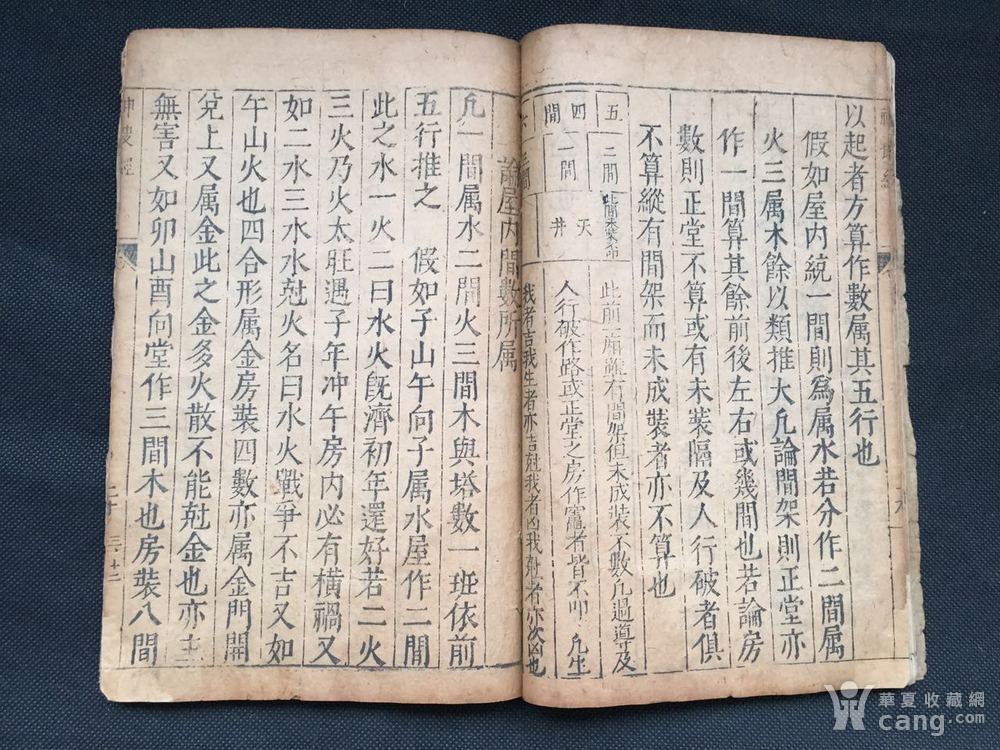 以起者方算作數属其五行也
假如屋内統一間則爲属水若分作二間属
火三属木餘以類推大凢論間架則正堂亦
作一間算其餘前後左右或幾間也若論房
數則正堂不算或有未裝隔及人行破者俱
不算縱有間架而未成裝者亦不算也
五 二間
四 一間 天
間 井
此前 廂雖有間架但未成装不數凢過導及
人行破作路或正堂之房作竃者皆不 凢生
我者吉我生者亦吉尅我者凶我尅者亦次凶也
六 三間
論屋内間數所属
凢一間属水二間火三間木與塔數一班依前
五行推之 假如子山午向子属水屋作二間
此之水一火二曰水火旣濟初年還好若二火
三火乃火太旺遇子年冲午房内必有橫禍又
如二水三水水尅火名曰水火戰爭不吉又如
午山火也四合形属金房裝四數亦属金門開
兌上又属金此之金多火散不能尅金也亦主
無害又如卯山酉向堂作三間木也房裝八間
二十 三 廿二
華夏收藏網
cang.com